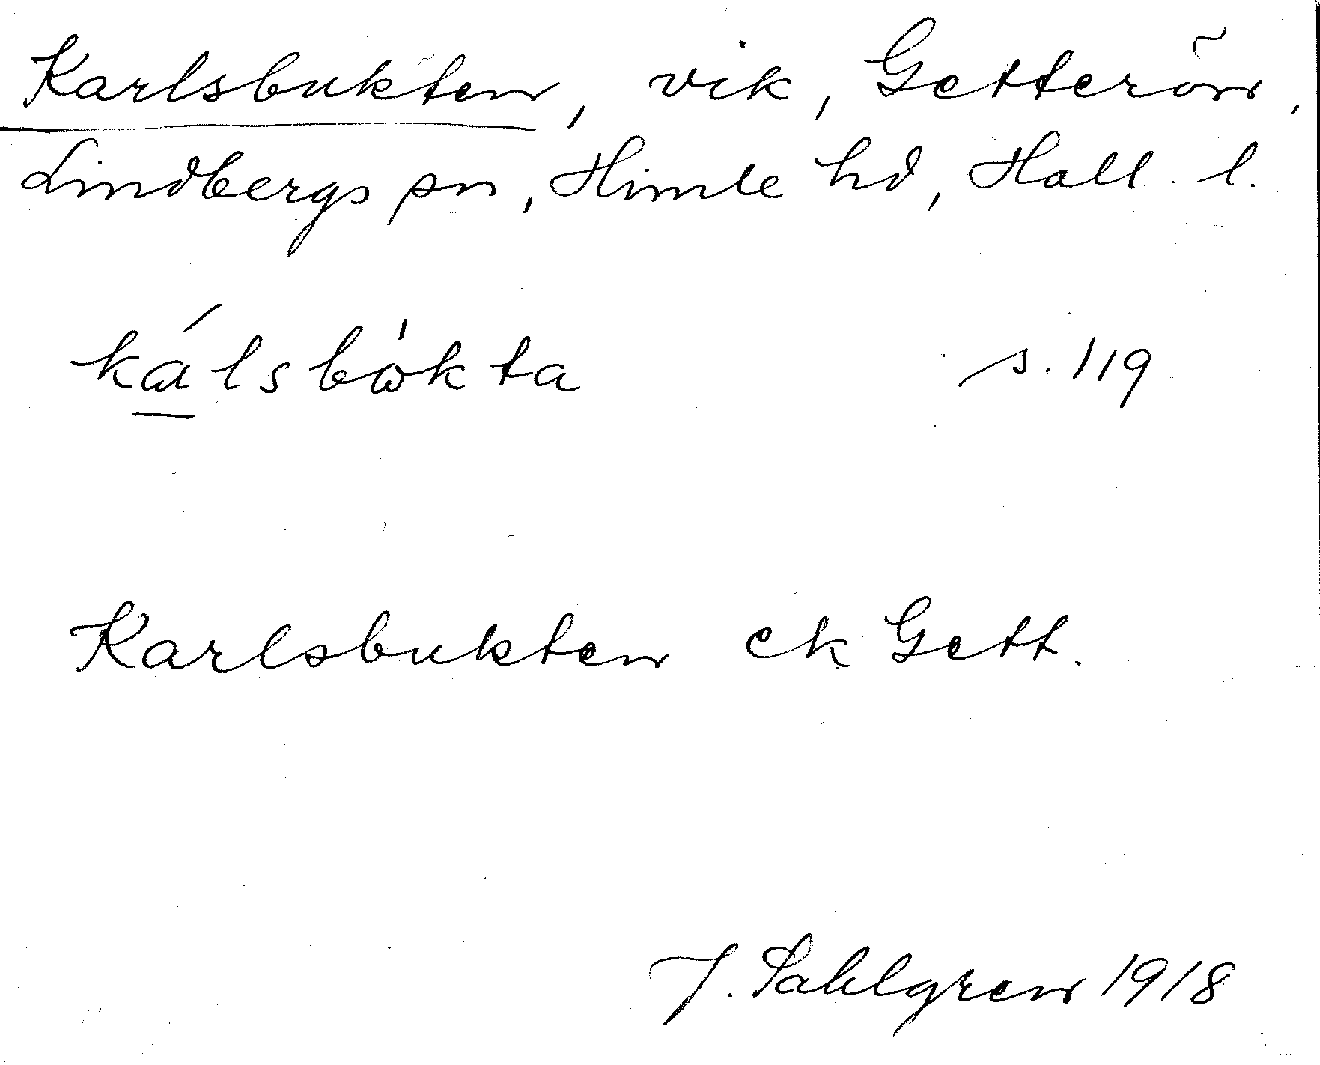 Karlsbukten, vik, Getterön,
Lindbergs sn, Himle hd, Hall. l.
kálsbὼkta s. 119
Karlsbukten ek Gett.
J. Sahlgren 1918